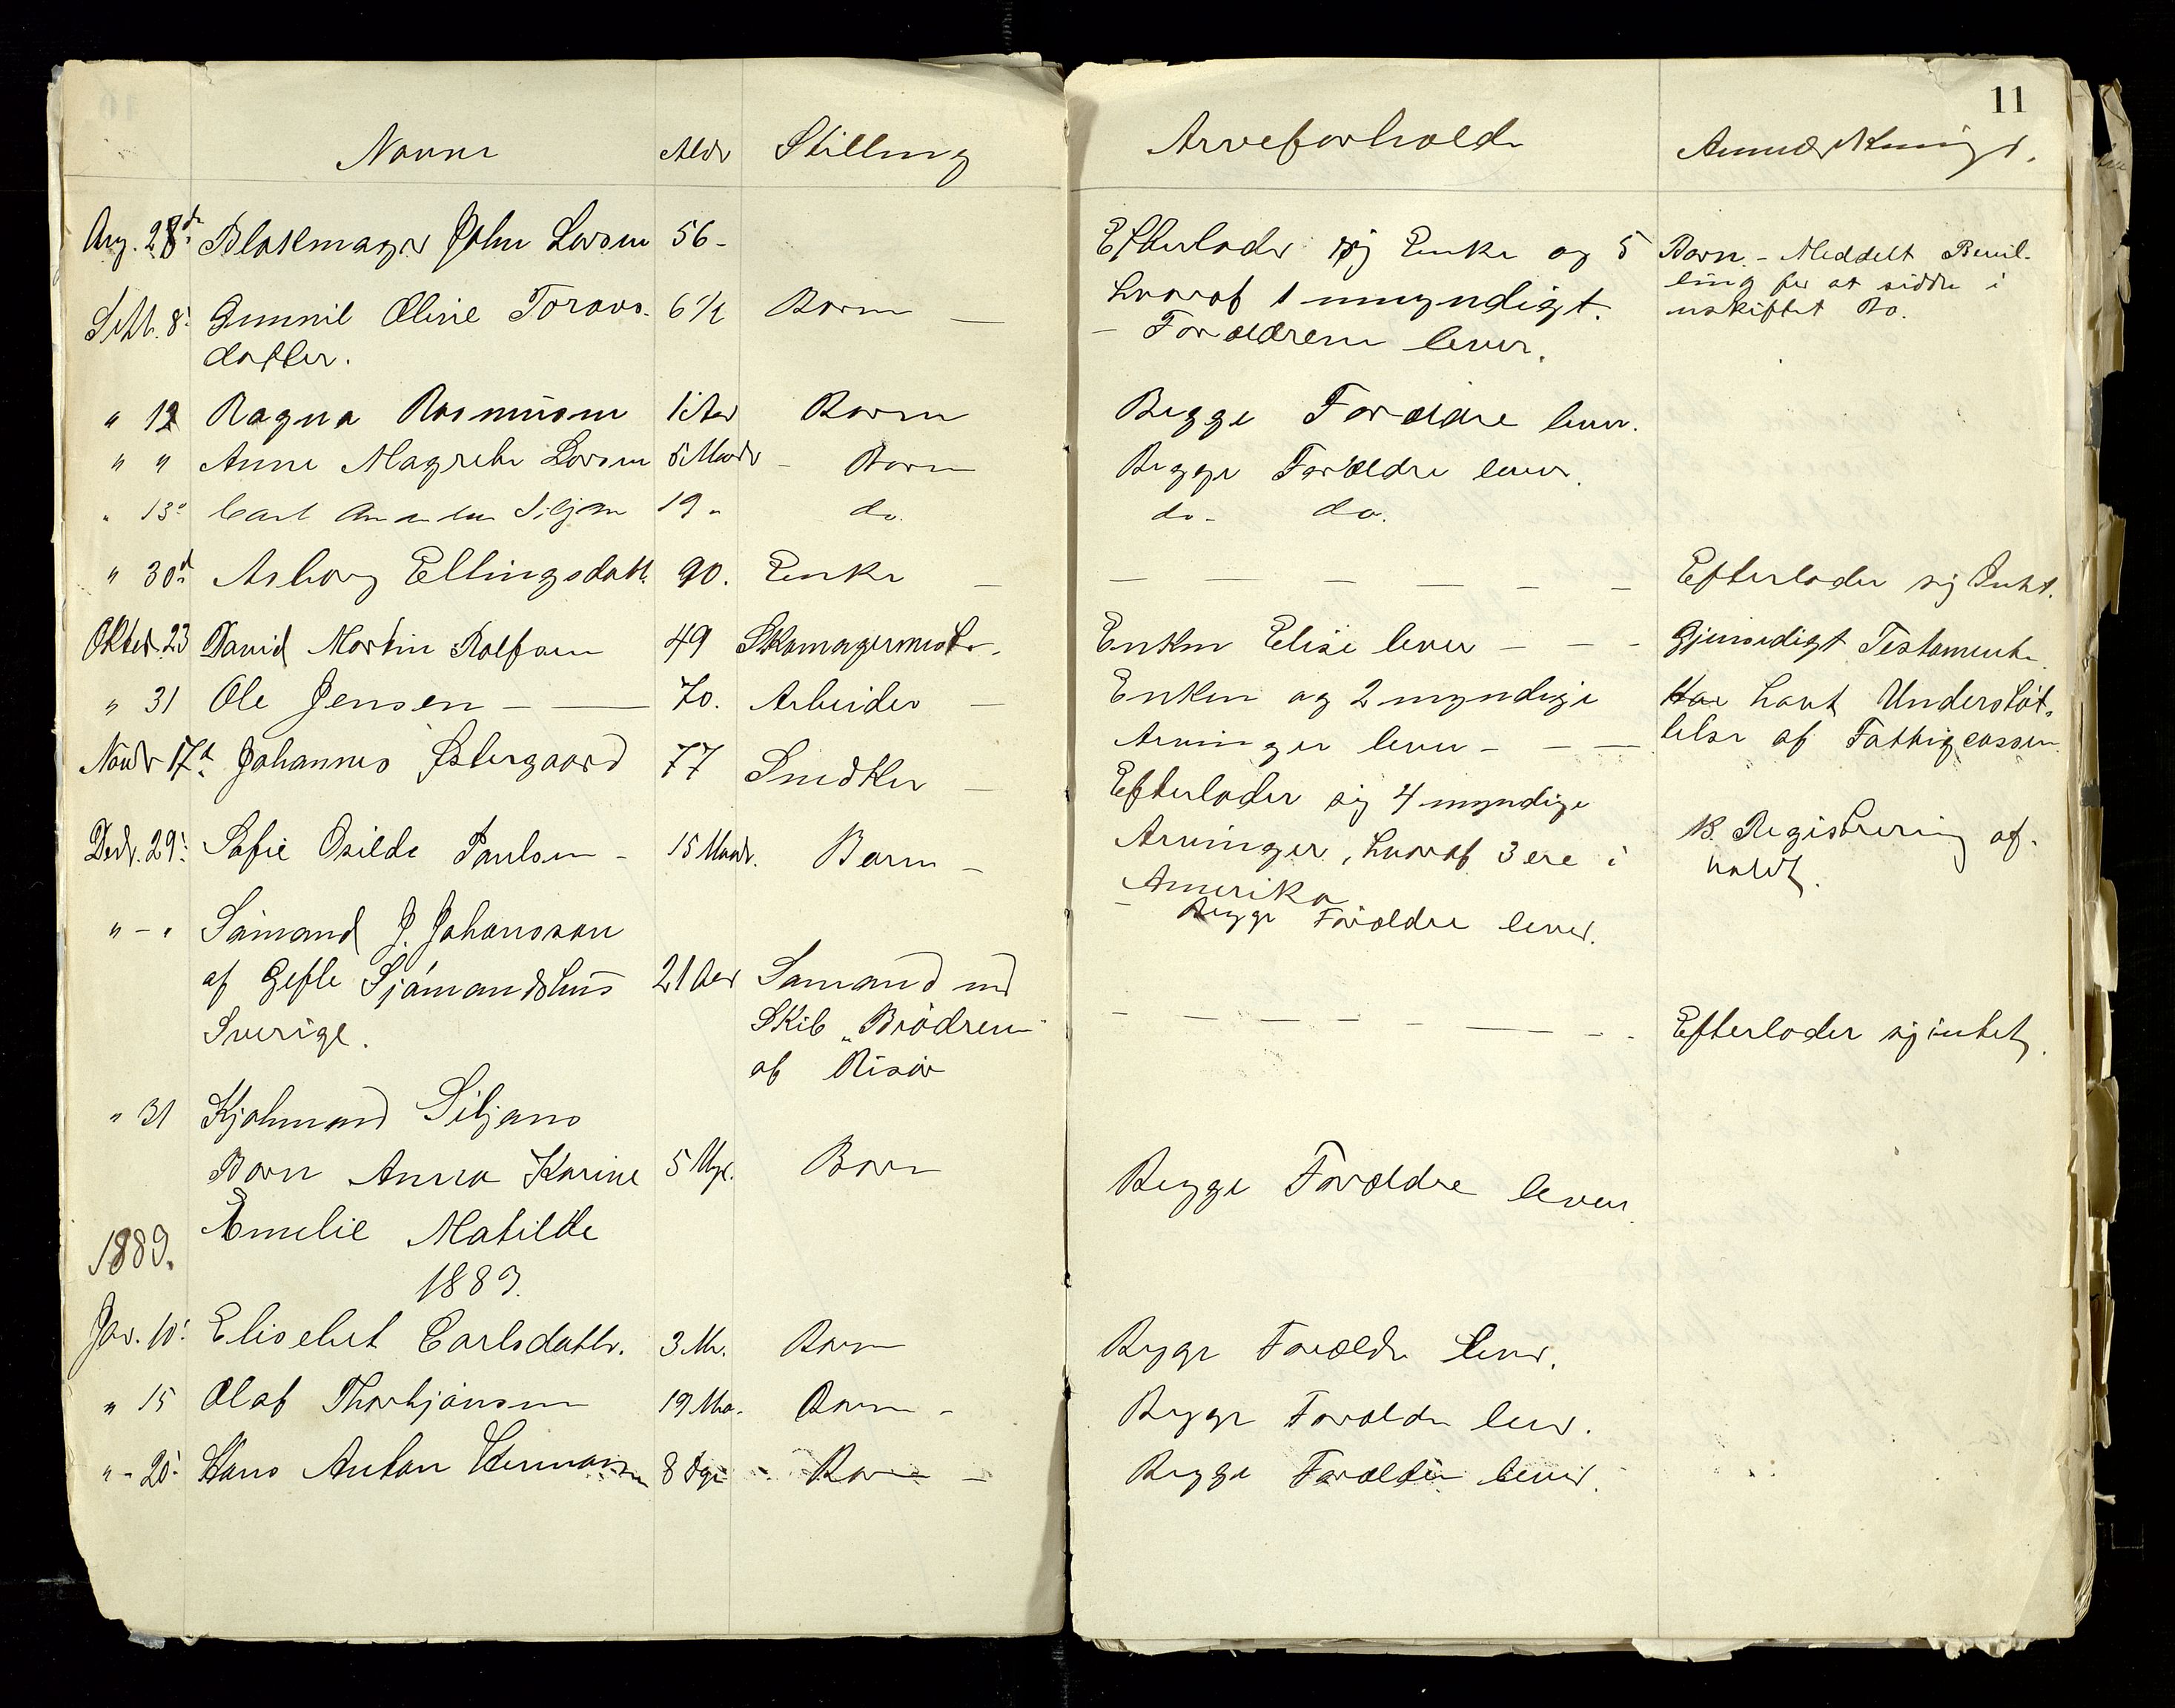 11
Navne Alder Stilling Arveforhold Anmærkninger.
Aug. 28de Blokmager John Larsen 56- Efterlader sig Enke og 5 Børn. - Meddelt Bevil-
hvoraf 1 umyndigt. ling for at sidde i
uskiftet Bo.
Septb. 8' Gunnil Oline Toravs- 6 1/2 Barn — - Forældrene lever.
datter.
" 12 Ragna Rasmusen 1 Aar Barn Begge Forældre lever.
" " Anne Magrethe Larsen 5 Maadr - Barn Begge Forældre lever.
" 13' Carl Siljan 19 " do. do - do.
" 30d Asborg Ellingsdatt. 90. Enke — — — — — — — Efterlader sig Intet.
Oktbr. 23 David Martin Rolfsen 49 Skomagermester. Enken Elise lever - - - Gjensidigt Testamente.
" 31 Ole Jensen - — 70. Arbeider — Enken og 2 myndige Har havt Understøt-
Arvinger lever - - — telse af Fattigcassen.
Novbr 17d. Johannes Østergaard 77 Snedker — Efterlader sig 4 myndige
Arvinger, hvoraf 3 ere i B. Registrering af-
Amerika holdt.
Decbr. 29' Sofie Osilde Paulsen - 15 Maadr. Barn - - Begge Forældre lever.
" - " Sømand J. Johansson
af Gefle Sjømandshus 21 Aar Sømand med
Sverige. Skib "Brødrene" - - - - - - - - Efterlader sig intet.
af Risør
" 31 Kjøbmand Siljans
Barn Anna Karine 5 Mdr. Barn Begge Forældre lever.
Emelie Matilde
1889.
1889.
Jar. 10' Elisebet Carlsdattr. 3 M. Barn Begge Forældre lever.
" 15 Olaf Thorbjønsen 19 Ma. Barn - Begge Forældre lever.
" - 20' Hans Anton Hermansen 8 Dge - Barn - Begge Forældre lever.